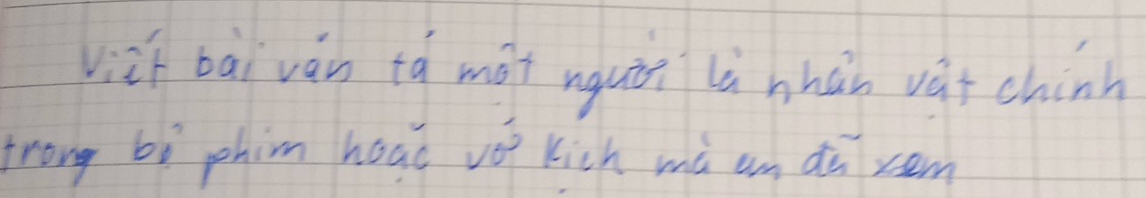 Viết bài văn tả một người là nhân vật chính
trong bộ phim hoặc vở kịch mà em đã xem